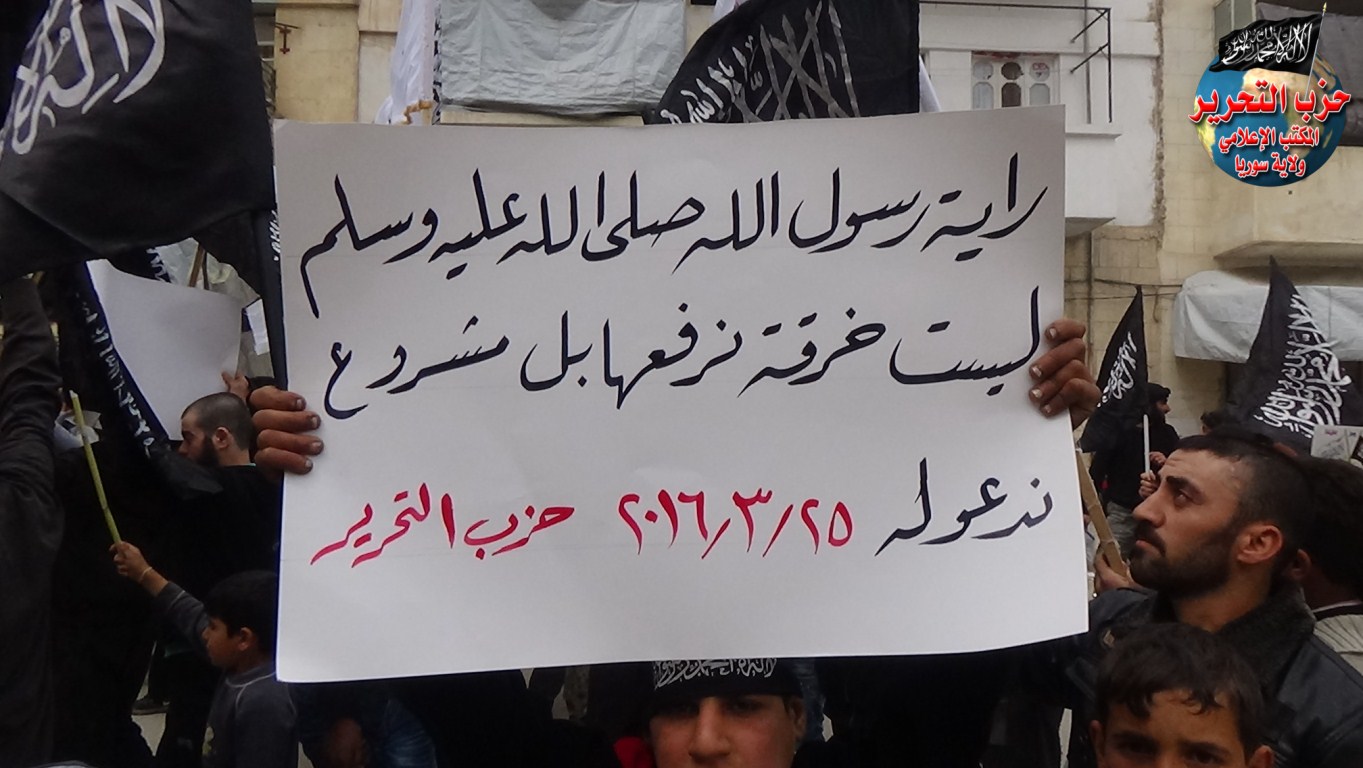 حزب التحرير
المكتب الإعلامي
ولاية سوريا
راية رسول الله صلى الله عليه وسلم
ليست خرقة نرفعها بل مشروع
ندعو له ٢٠١٦/٣/٢٥ حزب التحرير